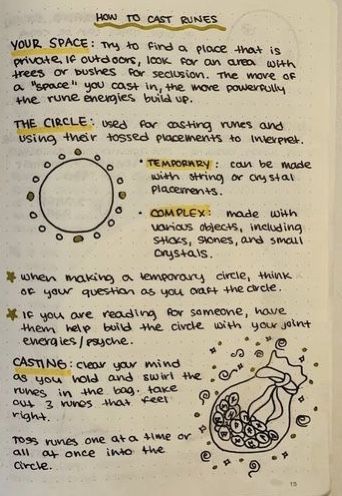 HOW TO CAST RUNES
YOUR SPACE: Try to find a place that is
private. If outdoors, look for an area with
trees or bushes for seclusion. The more of
a "space" you cast in, the more powerfully
the rune energies build up.
THE CIRCLE: used for casting runes and
using their tossed placements to interpret.
• TEMPORARY: can be made
with string or crystal
placements.
• COMPLEX: made with
various objects, including
sticks, stones, and small
crystals.
★ when making a temporary circle, think
of your question as you craft the circle.
★ If you are reading for someone, have
them help build the circle with your joint
energies/psyche.
CASTING: clear your mind
as you hold and swirl the
runes in the bag. take
out 3 runes that feel
right.
Toss runes one at a time or
all at once into the
circle.
15